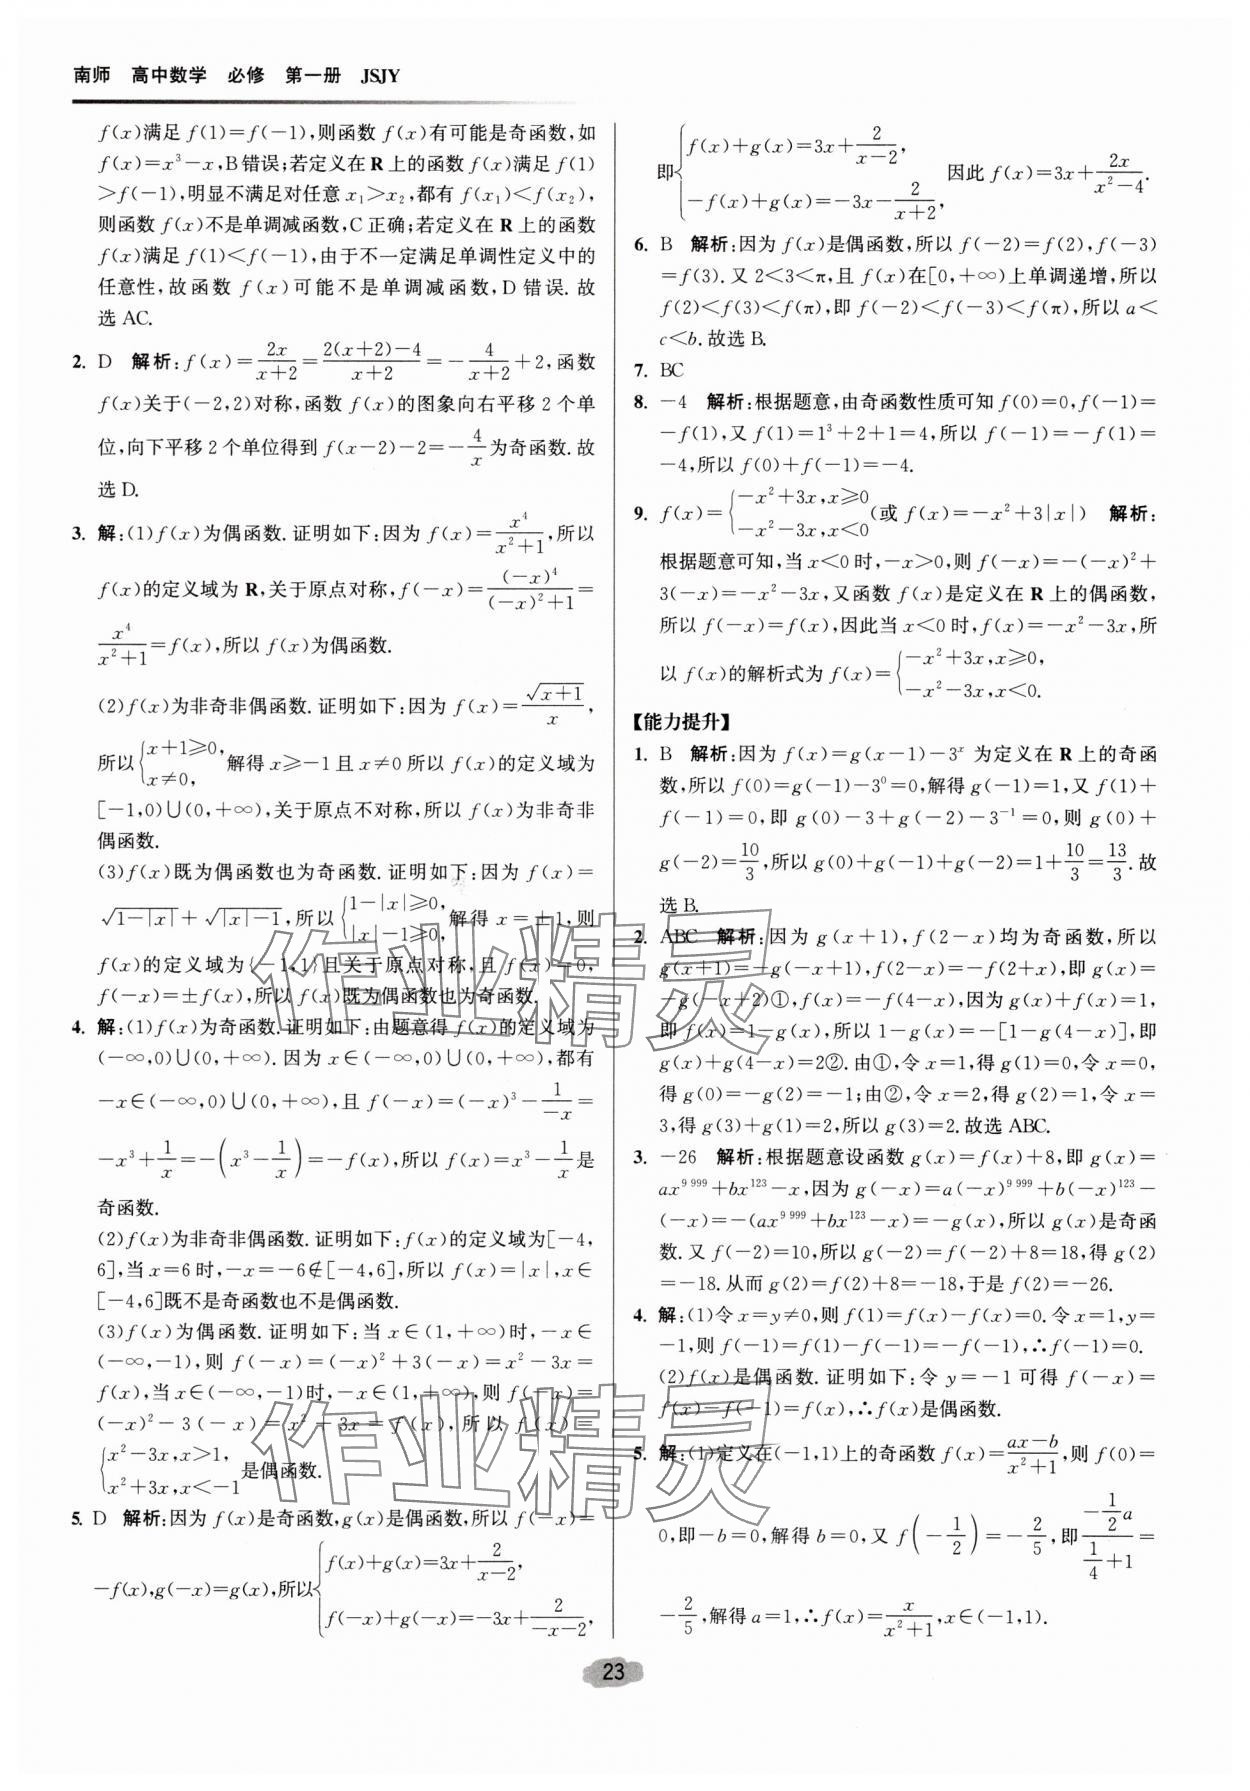 南师 高中数学 必修 第一册 JSJY
f(x)满足 f(1)=f(-1),则函数 f(x)有可能是奇函数,如
f(x)=x³-x,B错误;若定义在 R 上的函数 f(x)满足 f(1)
>f(-1),明显不满足对任意 x₁>x₂,都有 f(x₁)<f(x₂),
则函数 f(x)不是单调减函数,C正确;若定义在 R 上的函数
f(x)满足 f(1)<f(-1),由于不一定满足单调性定义中的
任意性,故函数 f(x)可能不是单调减函数,D错误.故
选 AC.
2. D 解析:f(x)=2x/(x+2)=(2(x+2)-4)/(x+2)=-4/(x+2)+2,函数
f(x)关于(-2,2)对称,函数 f(x)的图象向右平移 2 个单
位,向下平移 2 个单位得到 f(x-2)-2=-4/x为奇函数.故
选 D.
3. 解:(1)f(x)为偶函数.证明如下:因为 f(x)=x⁴/(x²+1),所以
f(x)的定义域为 R,关于原点对称,f(-x)=(-x)⁴/((-x)²+1)=
x⁴/(x²+1)=f(x),所以 f(x)为偶函数.
(2)f(x)为非奇非偶函数.证明如下:因为 f(x)=√(x+1)/x,
所以{x+1≥0, x≠0, 解得 x≥-1 且 x≠0 所以 f(x)的定义域为
[-1,0)∪(0,+∞),关于原点不对称,所以 f(x)为非奇非
偶函数.
(3)f(x)既为偶函数也为奇函数.证明如下:因为 f(x)=
√(1-|x|)+√(|x|-1),所以{1-|x|≥0, |x|-1≥0, 解得 x=±1,则
f(x)的定义域为{-1,1}且关于原点对称,且 f(x)=0,
f(-x)=±f(x),所以 f(x)既为偶函数也为奇函数.
4. 解:(1)f(x)为奇函数.证明如下:由题意得 f(x)的定义域为
(-∞,0)∪(0,+∞).因为 x∈(-∞,0)∪(0,+∞),都有
-x∈(-∞,0)∪(0,+∞),且 f(-x)=(-x)³-1/(-x)=
-x³+1/x=-(x³-1/x)=-f(x),所以 f(x)=x³-1/x是
奇函数.
(2)f(x)为非奇非偶函数.证明如下:f(x)的定义域为[-4,
6],当 x=6 时,-x=-6∉[-4,6],所以 f(x)=|x|,x∈
[-4,6]既不是奇函数也不是偶函数.
(3)f(x)为偶函数.证明如下:当 x∈(1,+∞)时,-x∈
(-∞,-1),则 f(-x)=(-x)²+3(-x)=x²-3x=
f(x),当 x∈(-∞,-1)时,-x∈(1,+∞),则 f(-x)=
(-x)²-3(-x)=x²+3x=f(x),所以 f(x)=
{x²-3x,x>1, x²+3x,x<-1 是偶函数.
5. D 解析:因为 f(x)是奇函数,g(x)是偶函数,所以 f(-x)=
-f(x),g(-x)=g(x),所以{f(x)+g(x)=3x+2/(x-2), f(-x)+g(-x)=-3x+2/(-x-2),
即{f(x)+g(x)=3x+2/(x-2), -f(x)+g(x)=-3x-2/(x+2), 因此 f(x)=3x+2x/(x²-4).
6. B 解析:因为 f(x)是偶函数,所以 f(-2)=f(2),f(-3)
=f(3).又 2<3<π,且 f(x)在[0,+∞)上单调递增,所以
f(2)<f(3)<f(π),即 f(-2)<f(-3)<f(π),所以 a<
c<b.故选 B.
7. BC
8. -4 解析:根据题意,由奇函数性质可知 f(0)=0,f(-1)=
-f(1),又 f(1)=1³+2+1=4,所以 f(-1)=-f(1)=
-4,所以 f(0)+f(-1)=-4.
9. f(x)={-x²+3x,x≥0 -x²-3x,x<0 (或 f(x)=-x²+3|x|) 解析:
根据题意可知,当 x<0 时,-x>0,则 f(-x)=-(-x)²+
3(-x)=-x²-3x,又函数 f(x)是定义在 R 上的偶函数,
所以 f(-x)=f(x),因此当 x<0 时,f(x)=-x²-3x,所
以 f(x)的解析式为 f(x)={-x²+3x,x≥0, -x²-3x,x<0.
【能力提升】
1. B 解析:因为 f(x)=g(x-1)-3ˣ 为定义在 R 上的奇函
数,所以 f(0)=g(-1)-3⁰=0,解得 g(-1)=1,又 f(1)+
f(-1)=0,即 g(0)-3+g(-2)-3⁻¹=0,则 g(0)+
g(-2)=10/3,所以 g(0)+g(-1)+g(-2)=1+10/3=13/3.故
选 B.
2. ABC 解析:因为 g(x+1),f(2-x)均为奇函数,所以
g(x+1)=-g(-x+1),f(2-x)=-f(2+x),即 g(x)=
-g(-x+2)①,f(x)=-f(4-x),因为 g(x)+f(x)=1,
即 f(x)=1-g(x),所以 1-g(x)=-[1-g(4-x)],即
g(x)+g(4-x)=2②.由①,令 x=1,得 g(1)=0,令 x=0,
得 g(0)=-g(2)=-1;由②,令 x=2,得 g(2)=1,令 x=
3,得 g(3)+g(1)=2,所以 g(3)=2.故选 ABC.
3. -26 解析:根据题意设函数 g(x)=f(x)+8,即 g(x)=
ax⁹ ⁹⁹⁹+bx¹²³-x,因为 g(-x)=a(-x)⁹ ⁹⁹⁹+b(-x)¹²³-
(-x)=-(ax⁹ ⁹⁹⁹+bx¹²³-x)=-g(x),所以 g(x)是奇函
数.又 f(-2)=10,所以 g(-2)=f(-2)+8=18,得 g(2)
=-18.从而 g(2)=f(2)+8=-18,于是 f(2)=-26.
4. 解:(1)令 x=y≠0,则 f(1)=f(x)-f(x)=0.令 x=1,y=
-1,则 f(-1)=f(1)-f(-1)=-f(-1),∴f(-1)=0.
(2)f(x)是偶函数.证明如下:令 y=-1 可得 f(-x)=
f(x)-f(-1)=f(x),∴f(x)是偶函数.
5. 解:(1)定义在(-1,1)上的奇函数 f(x)=(ax-b)/(x²+1),则 f(0)=
0,即-b=0,解得 b=0,又 f(-1/2)=-2/5,即(-1/2a)/(1/4+1)=
-2/5,解得 a=1,∴f(x)=x/(x²+1),x∈(-1,1).
作业精灵
作业精灵
23